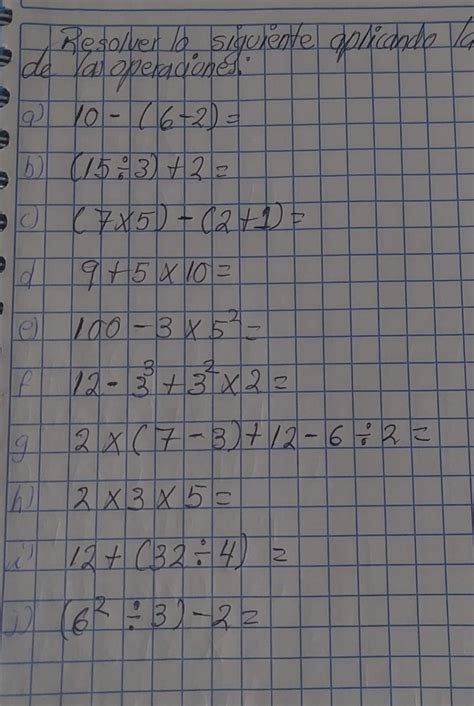 Resolver lo siguiente aplicando la
de las operaciones:
a) 10 - (6-2) =
b) (15÷3) + 2 =
c) (7x5) - (2+1) =
d 9 + 5 x 10 =
e) 100 - 3 x 5² =
f 12 - 3³ + 3² x 2 =
g 2 x (7 - 3) + 12 - 6 ÷ 2 =
h) 2 x 3 x 5 =
i) 12 + (32 ÷ 4) =
j) (6² ÷ 3) - 2 =